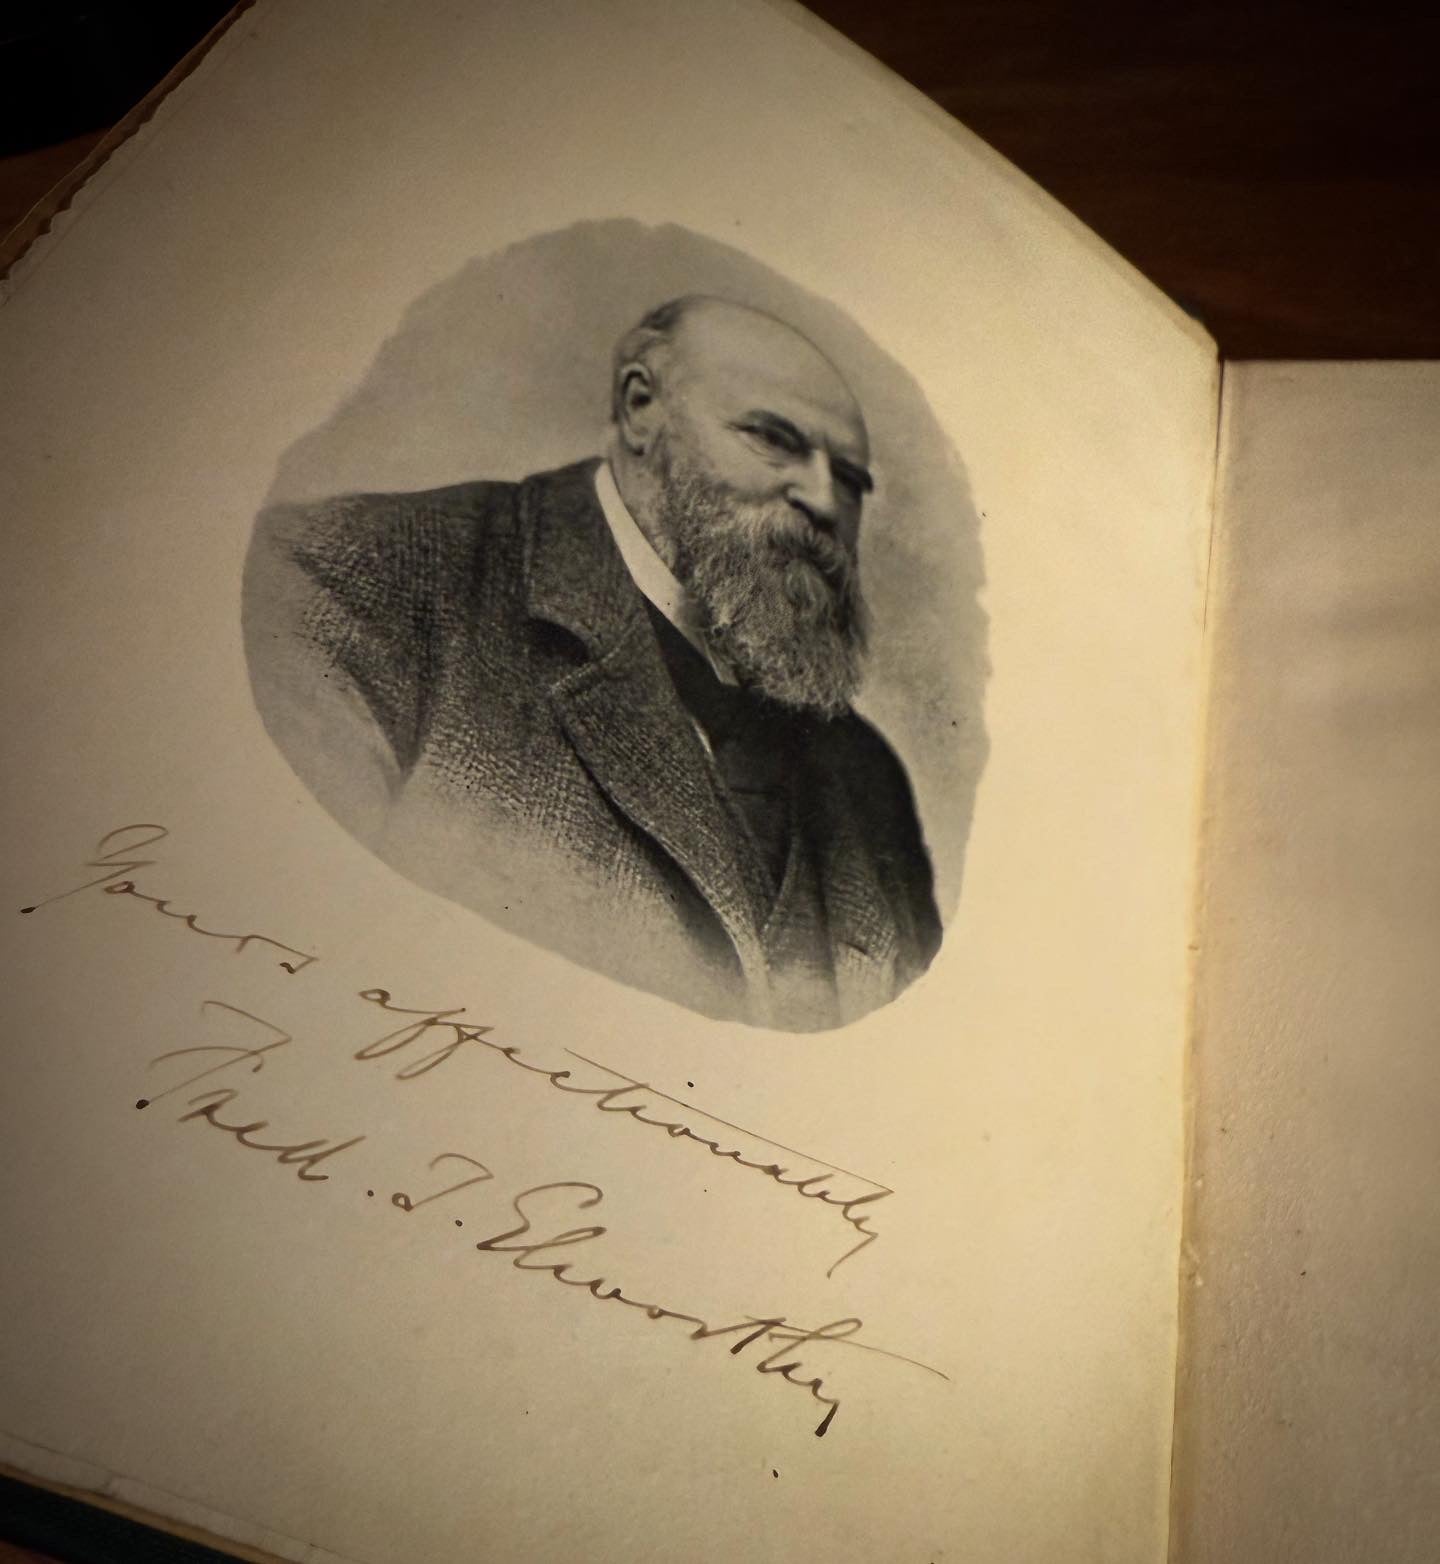 Yours affectionately
Fred. T. Elworthy